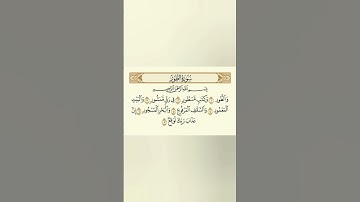 سُورَةُ الطُّورِ
بِسْمِ اللَّهِ الرَّحْمَٰنِ الرَّحِيمِ
وَالطُّورِ ١ وَكِتَابٍ مَسْطُورٍ ٢ فِي رَقٍّ مَنْشُورٍ ٣ وَالْبَيْتِ
الْمَعْمُورِ ٤ وَالسَّقْفِ الْمَرْفُوعِ ٥ وَالْبَحْرِ الْمَسْجُورِ ٦ إِنَّ
عَذَابَ رَبِّكَ لَوَاقِعٌ ٧